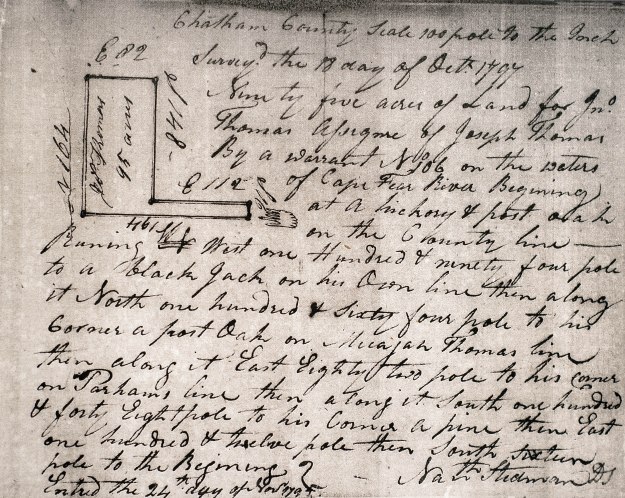 Chatham County Scale 100 pole to the Inch
Survey'd the 18 day of Octr. 1797
Ninety five acres of Land for Jno.
Thomas Assignee of Joseph Thomas
By a warrant No. 306 on the waters
of Cape Fear River Begining
at a hickory & post oak
on the County line
Runing West one Hundred & ninety four pole
to a black Jack on his Own line then along
it North one hundred & Sixty four pole to his
Corner a post Oak on Micajah Thomas line
then along it East Eighty two pole to his corner
on Parhams line then along it South one hundred
& forty Eight pole to his Corner a pine then East
one hundred & twelve pole then South sixteen
pole to the Begining
Nat. Stedman DS
Entred the 24th day of Novr. 1795
E. 82
N 164
S 148
Thomas
95 acres
E 112